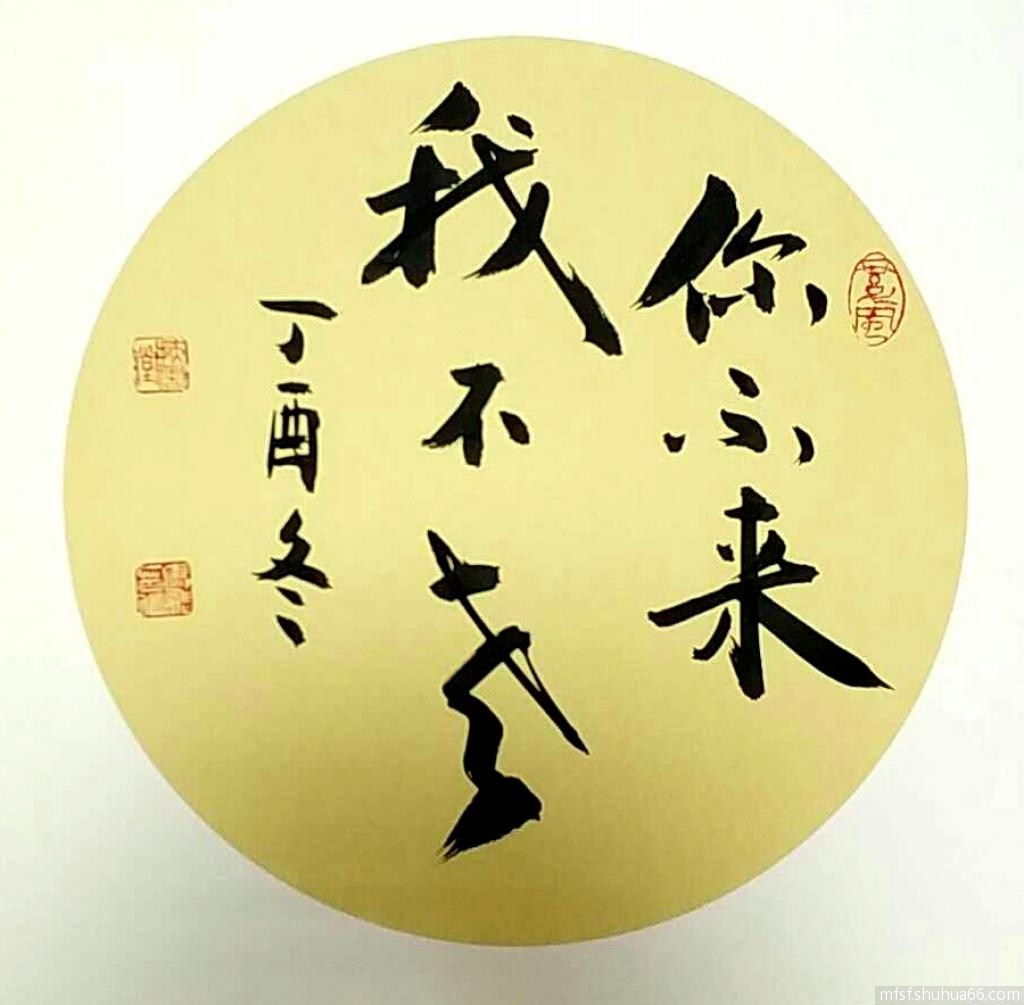 你不来
我不老
丁酉冬
mfsfshuhua66.com